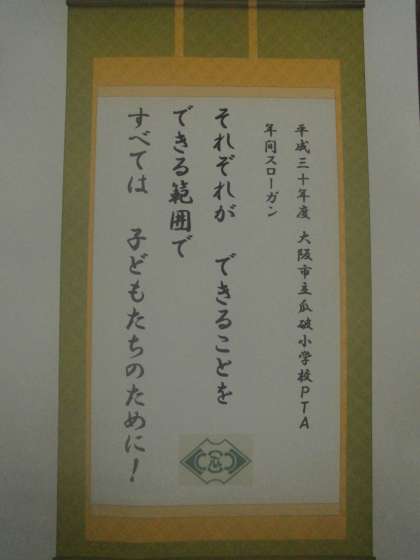 平成三十年度 大阪市立瓜破小学校PTA
年間スローガン
それぞれが できることを
できる範囲で
すべては 子どもたちのために！